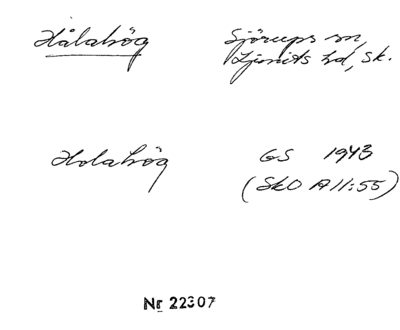 Hålahög
Sjörups sn,
Ljunits hd, Sk.
Holahög
GS 1943
(SkO A11:55)
Nr 22307